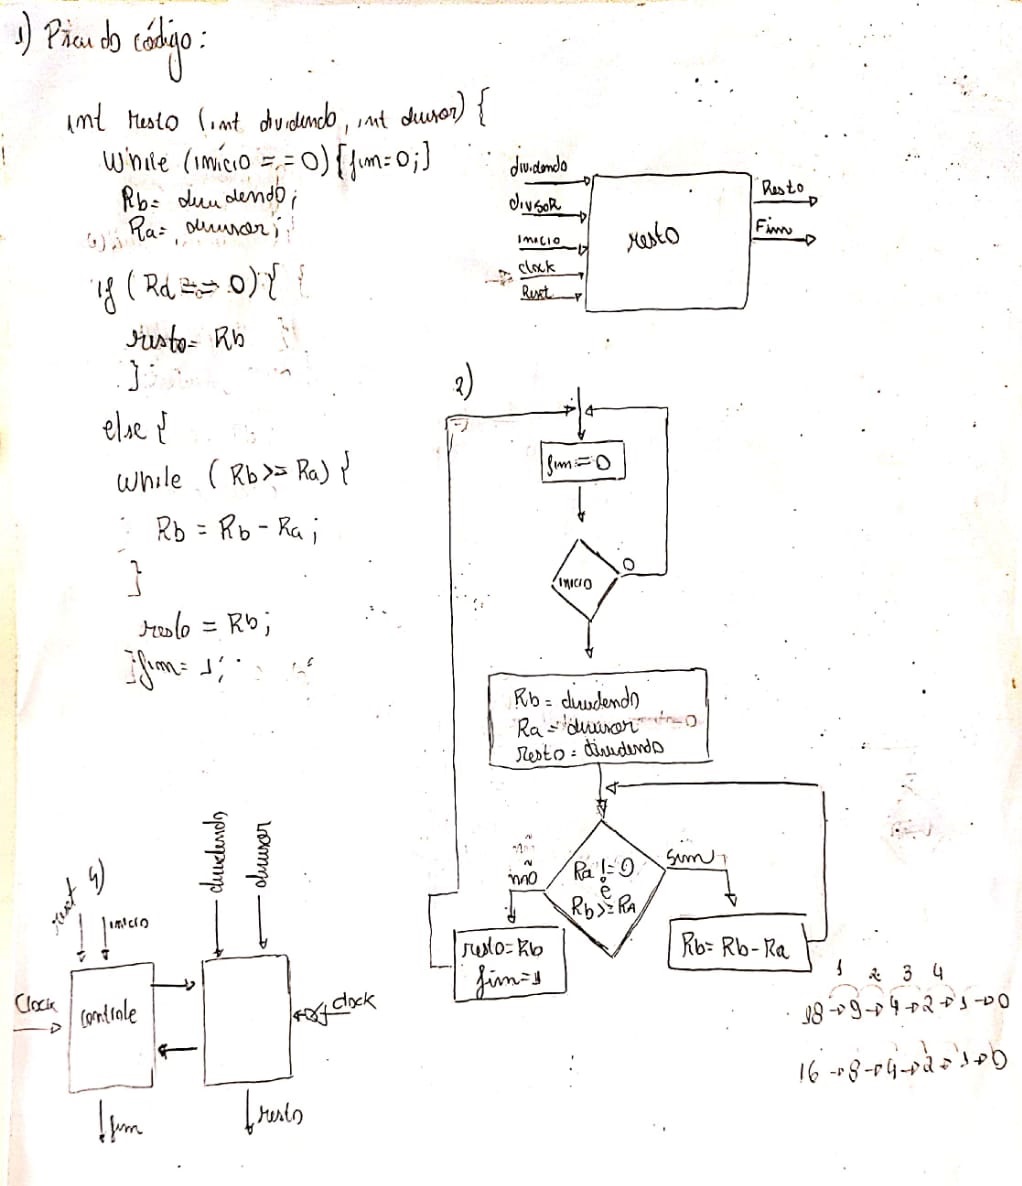 1) Pseudo código:
int resto (int dividendo, int divisor) {
While (início == 0) {fim=0;}
Rb= dividendo;
Ra= divisor;
if (Ra == 0) {
resto= Rb
}
else {
while (Rb>= Ra) {
Rb = Rb - Ra;
}
resto = Rb;
}fim= 1;
dividendo
divisor
inicio
clock
Reset
resto
Resto
Fim
2)
fim=0
inicio
0
Rb= dividendo
Ra= divisor
Resto= dividendo
Ra != 0
e
Rb>= RA
não
sim
resto=Rb
fim=1
Rb= Rb-Ra
1 2 3 4
18→9→4→2→1→0
16→8→4→2→1→0
4)
reset
inicio
dividendo
divisor
Clock
controle
clock
fim
resto